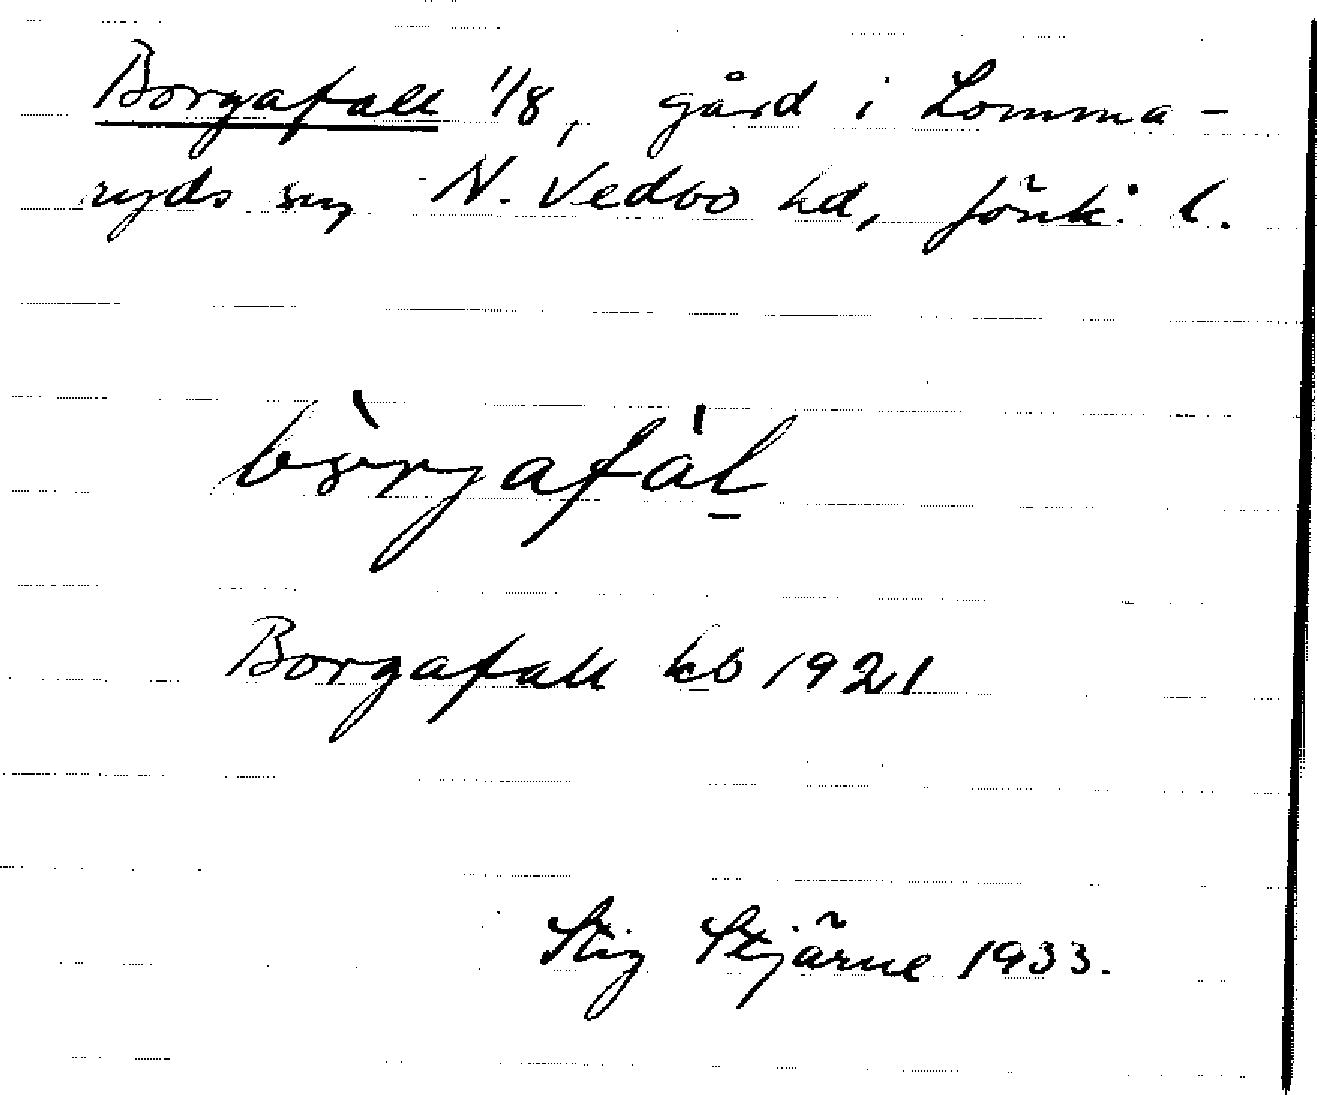 Borgafall 1/8, gård i Lomma-
ryds sn, N. Vedbo hd, Jönk. l.
bòrjafàl
Borgafall kb 1921
Stig Stjärne 1933.